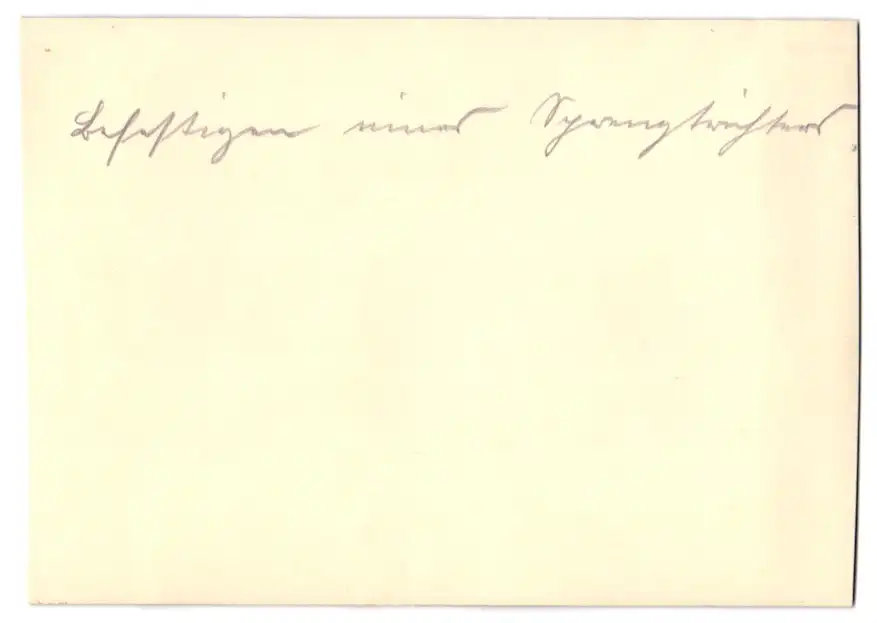 Befestigen eines Sprengtrichters.